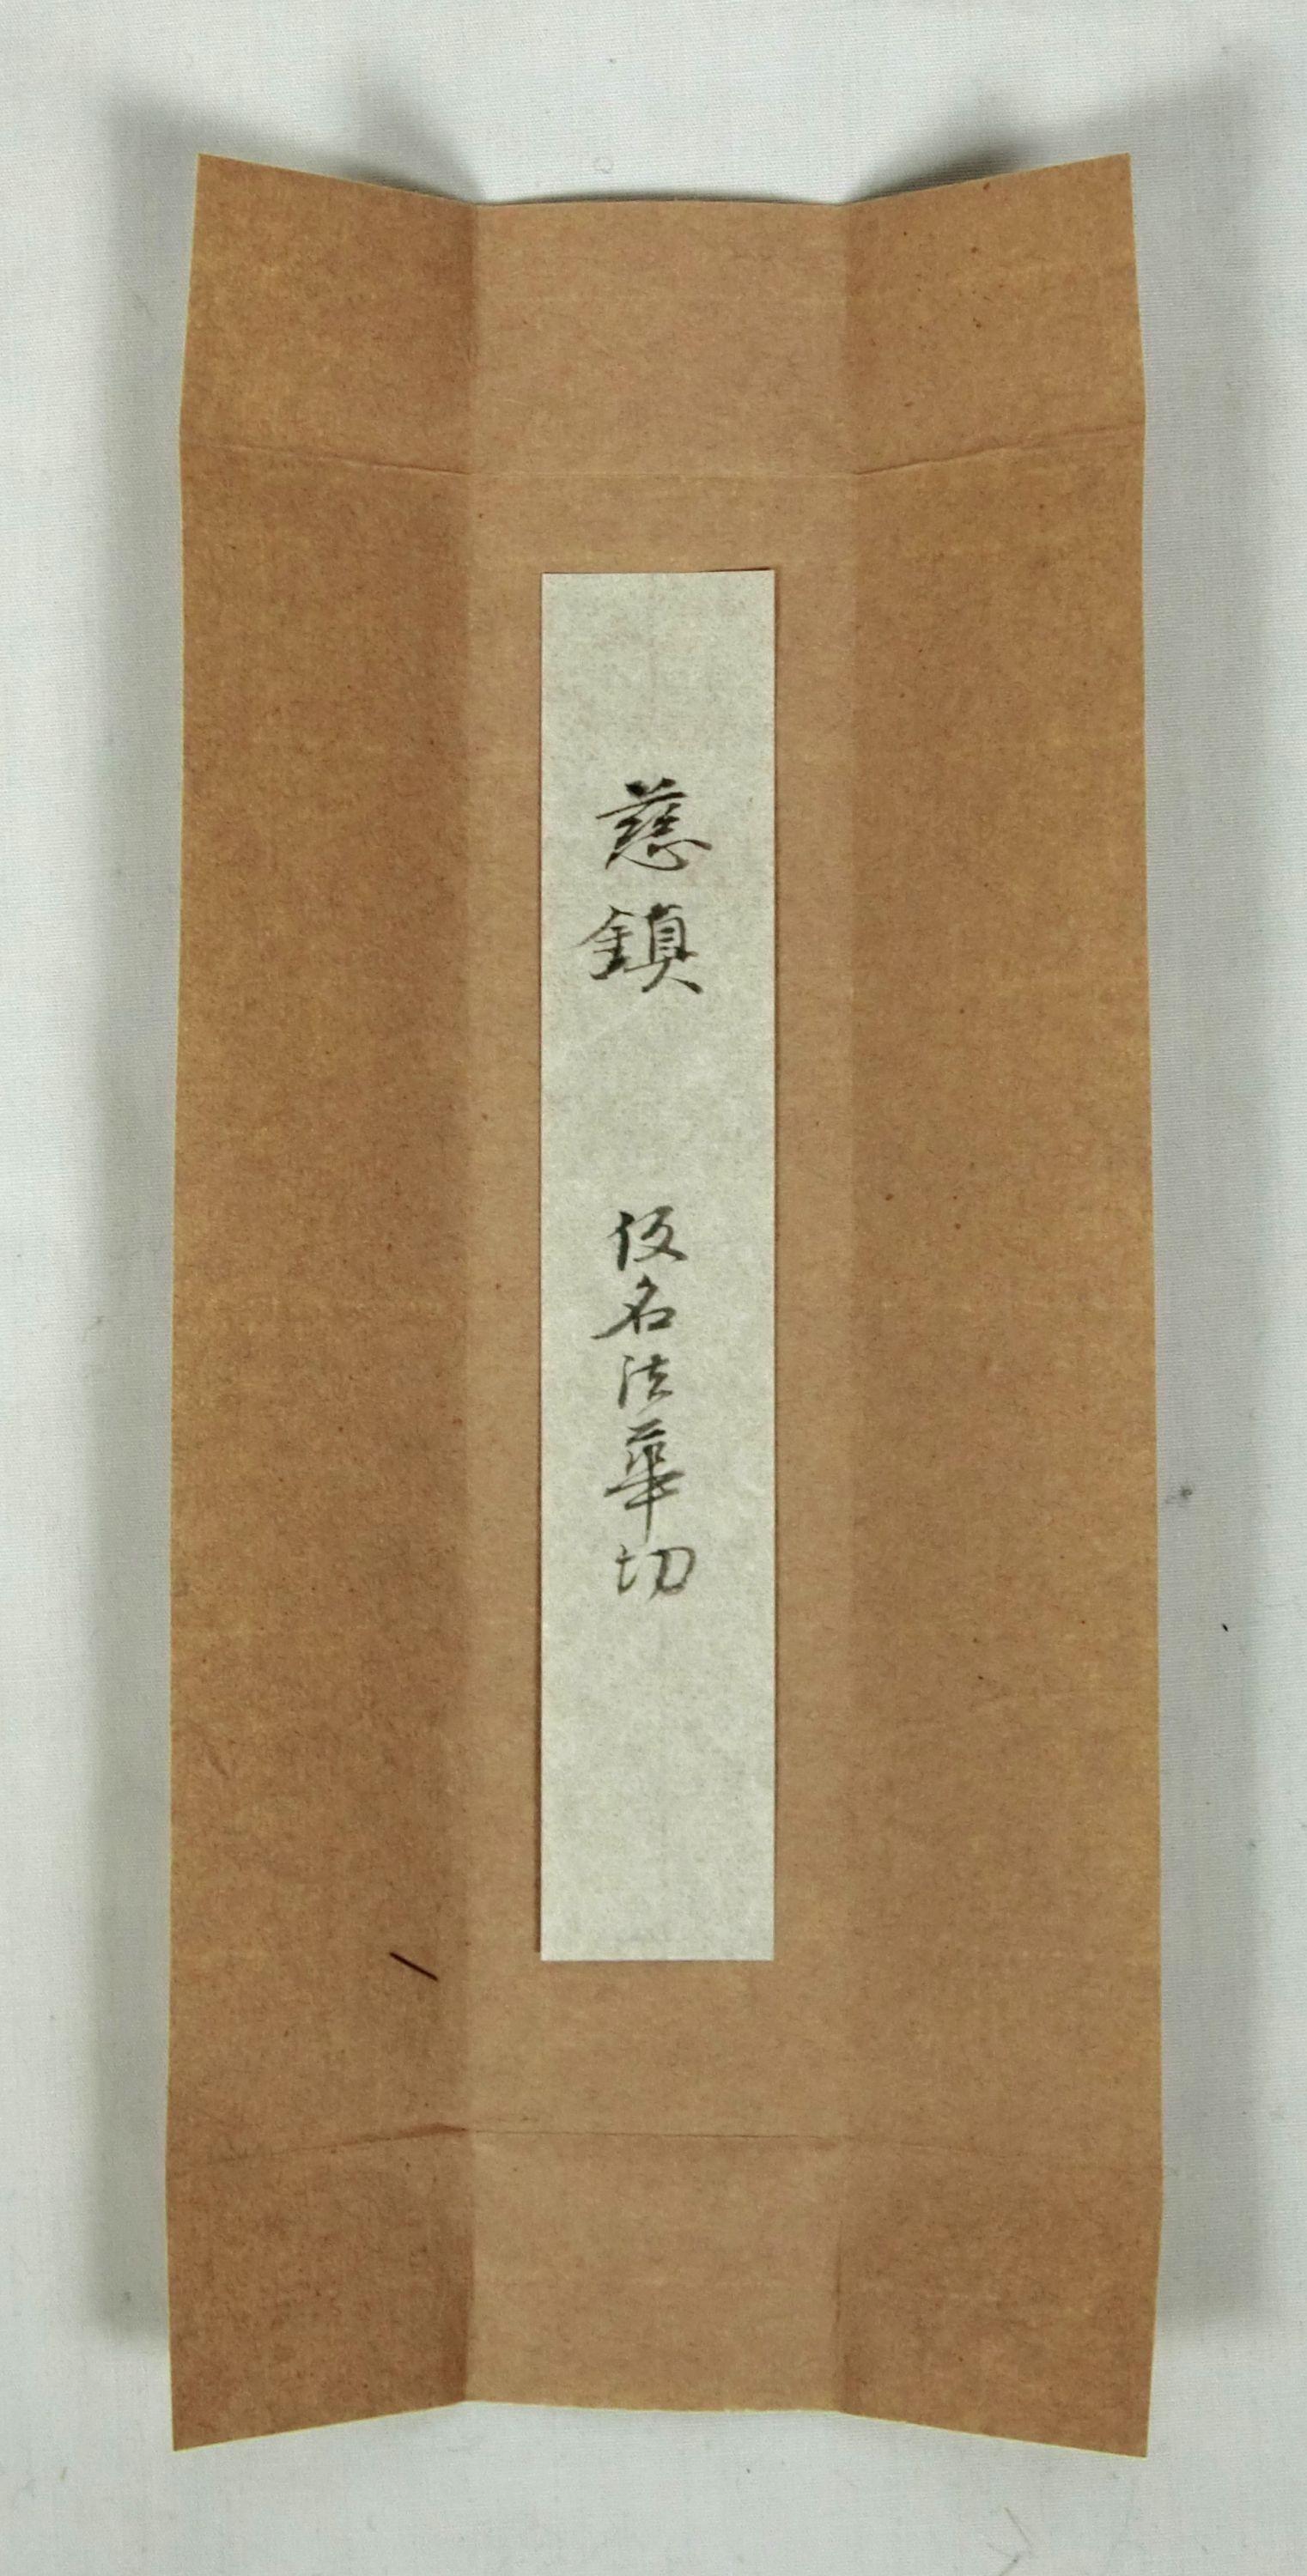 慈鎮　仮名法華切